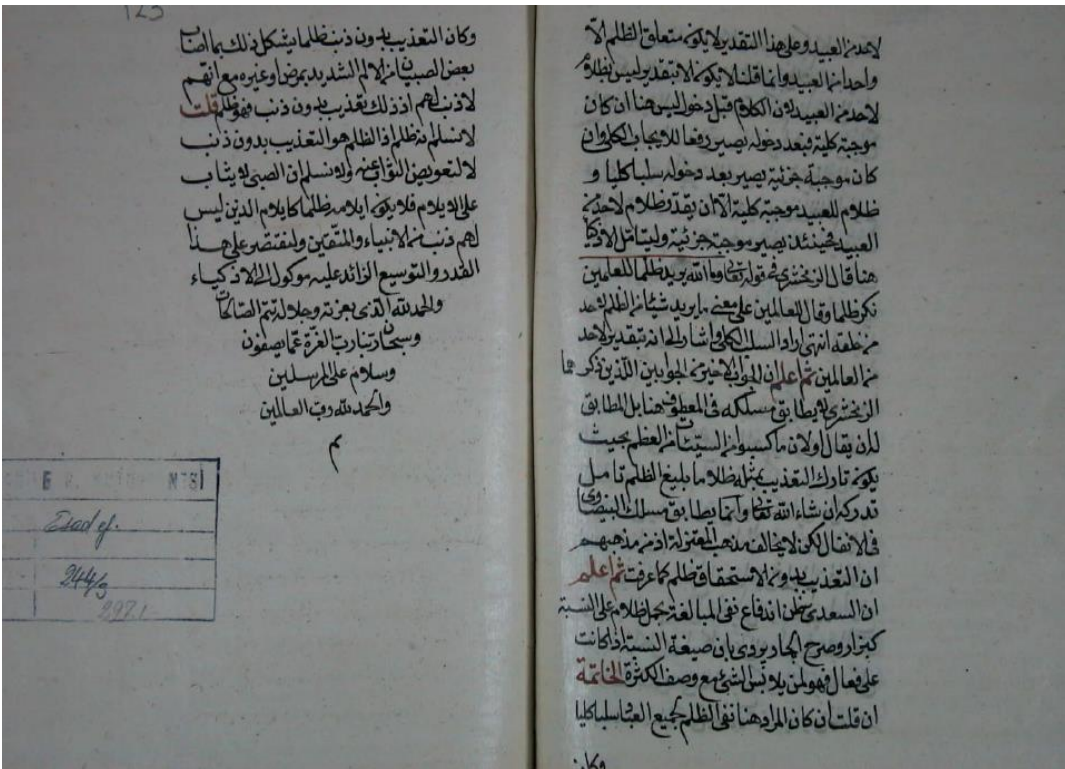 لاحد من العبيد وعلى هذا التقدير لا يكون متعلق الظلم الا
واحدا من العبيد وانما قلنا لا يكون لا تقدير ليس بظلام
لاحد من العبيد لان الكلام قبل دخول ليس هنا ان كان
موجبة كلية فبعد دخوله يصير رفعا للايجاب الكلي وان
كان موجبة جزئية يصير بعد دخوله سلبا كليا و
ظلام للعبيد موجبة كلية الا ان يقدر ظلام لاحد من
العبيد فحينئذ يصير موجبة جزئية وليتامل الاذكيا
هنا قال الزمخشري في قوله تعالى وما الله يريد ظلما للعالمين
نكر ظلما وقال للعالمين على معنى ما يريد شيئا من الظلم لاحد
من خلقه انتهى اراد السلب الكلي واشار الى انه بتقدير لاحد
من العالمين ثم اعلم ان الجواب الاخير من الجوابين اللذين ذكرهما
الزمخشري لا يطابق مسلكه في المعطوف هنا بل المطابق
لان يقال اولان ما كسبوا من السيئات من العظم بحيث
يكون تارك التعذيب بمثله ظلاما بليغ الظلم تامل
تدركه ان شاء الله تعالى وانما يطابق مسلك البيضاوي
في الانفال لكن لا يخالف مذهب المعتزلة اذ من مذهبهم
ان التعذيب بدون الاستحقاق ظلم كما عرفت ثم اعلم
ان السعدي ظن اندفاع نفي المبالغة بحمل ظلام على النسبة
كبزار وصرح الجاربردي بان صيغة النسبة اذا كانت
على فعال فهو لمن يلابس الشئ مع وصف الكثرة الخاتمة
ان قلت ان كان المراد هنا نفي الظلم لجميع العباد سلبا كليا
وكان
123
وكان التعذيب بدون ذنب ظلما يشكل ذلك بما اصاب
بعض الصبيان من الالم الشديد بمرض او غيره مع انهم
لا ذنب لهم اذ ذلك تعذيب بدون ذنب فهو ظلم قلت
لا نسلم انه ظلم اذ الظلم هو التعذيب بدون ذنب
لا لتعويض الثواب عنه ولا نسلم ان الصبي لا يثاب
على الايلام فلا يكون ايلامه ظلما كايلام الذين ليس
لهم ذنب من الانبياء والمتقين ولنقتصر على هذا
القدر والتوسيع الزائد عليه موكول الى الاذكياء
والحمد لله الذي بعزته وجلاله تتم الصالحات
وسبحان ربنا رب العزة عما يصفون
وسلام على المرسلين
والحمد لله رب العالمين
م
Esad ef.
244/9
297.1